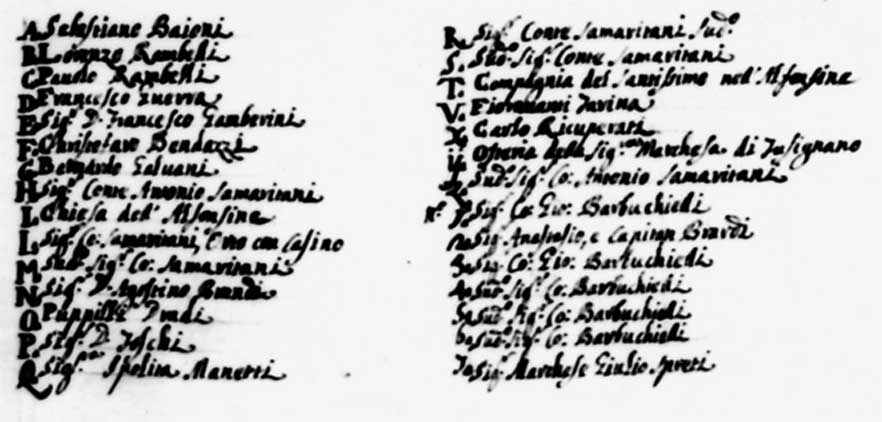 A Sebastiano Baioni
B Lorenzo Rambelli
C Paudo Rambelli
D Francesco Guerra
E Sig.r D. Francesco Gamberini
F. Christofaro Bendazzi
G Bernardo Galvani
H Sig.r Conte Antonio Samaritani
I. Chiesa dell' Alfonsine
L. Sig.r Co: Samaritani, Orto con Casino
M. Sud.o Sig.r Co: Samaritani
N. Sig.r D. Agostino Brandi
O. Dradi
P. Sig.r D. Toschi
Q Sig.ra Ipolita Manetti
R. Sig.r Conte Samaritani Sud.o
S. Sud.o Sig.r Conte Samaritani
T. Compagnia del Santissimo nell' Alfonsine
V. Fioravanti
X. Carlo Ricuperati
Y. Osteria della Sig.ra Marchesa di Fusignano
Z. Sud.o Sig.r Co: Antonio Samaritani
N.o 1. Sig.r Co: Gio: Barbuchielli
2. Sig. Anastasio, e Capitan Brandi
3. Sig. Co: Gio: Barbuchielli
4. Sud.o Sig.r Co: Barbuchielli
5. Sud.o Sig.r Co: Barbuchielli
6. Sud.o Sig.r Co: Barbuchielli
7. Sig.r Marchese Giulio Spreti